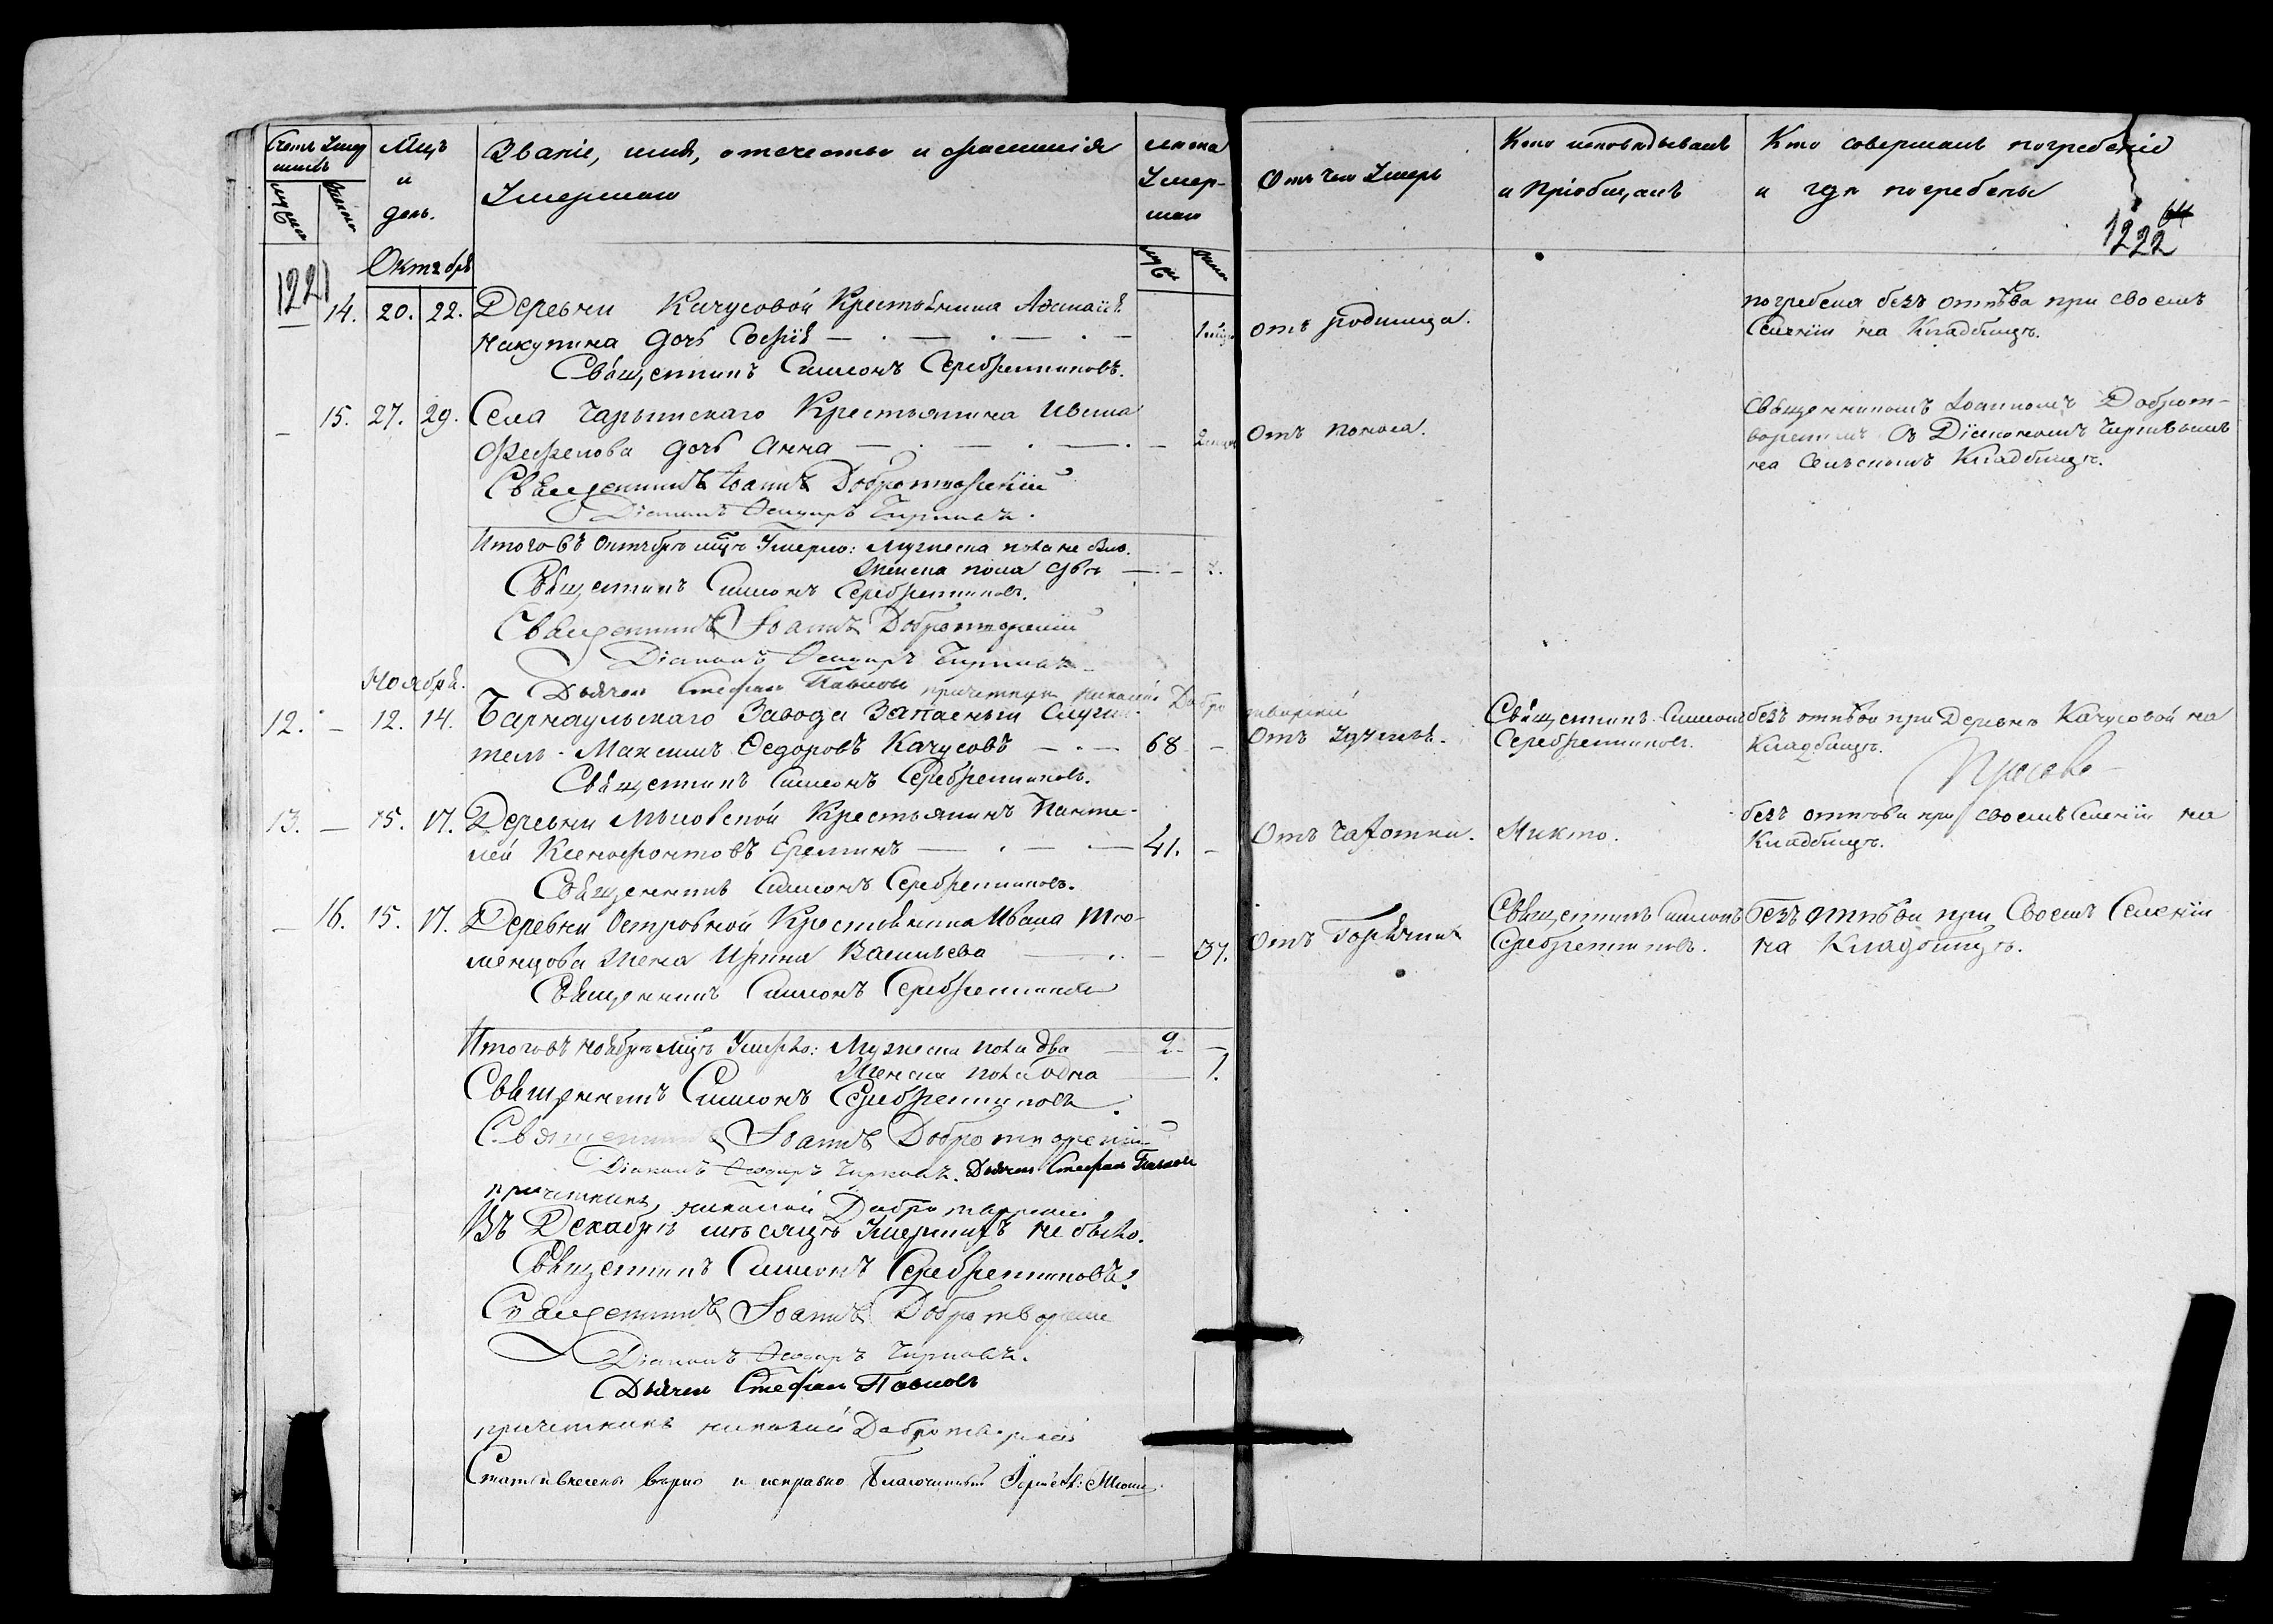 Счетъ Умер
шихъ
Мцъ
и
день.
Званіе, имя, отечество и фамилія
Умершаго
лета
Умер-
шаго
Отъ чего Умеръ
Кто исповѣдывалъ
и пріобщалъ
Кто совершалъ погребеніе
и гдѣ погребены
64
1222
Октябрь
1221
14. 20. 22. Деревни Качусовой Крестьянина
дочь Софія
Священникъ Симеонъ Серебренниковъ.
отъ родимца.
погребена безъ отпѣва при своемъ
Селеніи на Кладбищѣ.
15. 27. 29. Села Чарышскаго Крестьянина
дочь Анна
Священникъ Іоаннъ Добротворскій
Діаконъ Ѳеодоръ Чирковъ.
Отъ поноса.
Священникомъ Іоанномъ Доброт-
ворскимъ Съ Діакономъ Чирковымъ
на Сельскомъ Кладбищѣ.
Итого въ Октябрѣ мцѣ Умерло: Мужеска пола не было.
Женска пола двѣ 2.
Священникъ Симеонъ Серебренниковъ.
Священникъ Іоаннъ Добротворскій
Діаконъ Ѳеодоръ Чирковъ
Дьячекъ Стефанъ Павловъ причетникъ Николай Добротворскій
Ноября.
12. – 12. 14. Барнаульскаго Завода Запасный Служи-
тель Максимъ Ѳедоровъ Качусовъ 68 –
Священникъ Симеонъ Серебренниковъ.
Священникъ Симеонъ
Серебренниковъ.
безъ отпѣва при Деревнѣ Качусовой на
Кладбищѣ.
13. – 15. 17. Деревни Мысовской Крестьянинъ Панте-
лей Ксенофонтовъ Ереминъ 41. –
Священникъ Симеонъ Серебренниковъ.
Отъ Чахотки. Никто.
безъ отпѣва при своемъ Селеніи на
Кладбищѣ.
– 16. 15. 17. Деревни Островной Крестьянина Ивана Тю-
менцова жена Ирина Васильева – 37.
Священникъ Симеонъ Серебренниковъ
Отъ Горячки
Священникъ Симеонъ
Серебренниковъ.
безъ отпѣва при Своемъ Селеніи
на Кладбищѣ.
Итого въ Ноябрѣ мцѣ Умерло: Мужеска пола два 2. –
Женска пола одна 1.
Священникъ Симеонъ Серебренниковъ.
Священникъ Іоаннъ Добротворскій
Діаконъ Ѳеодоръ Чирковъ. Дьячекъ Стефанъ Павловъ
причетникъ, Николай Добротворскій
Въ Декабрѣ мѣсяцѣ Умершихъ не было.
Священникъ Симеонъ Серебренниковъ.
Священникъ Іоаннъ Добротворскій
Діаконъ Ѳеодоръ Чирковъ.
Дьячекъ Стефанъ Павловъ
причетникъ Николай Добротворскій
Статьи внесены вѣрно и исправно Благочинный